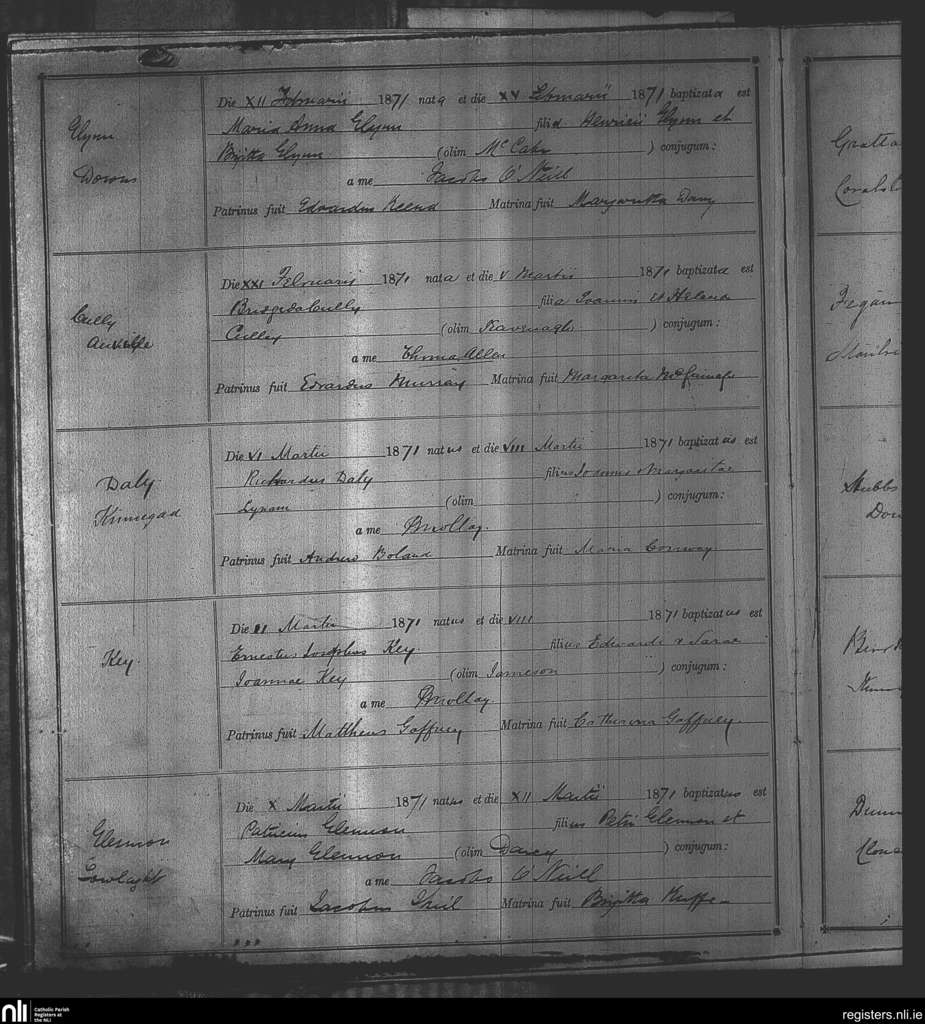 Glynn
Die XII Februarii 1871 nata et die XV Februarii 1871 baptizata est
Maria Anna Glynn filia Henricii Glynn et
Brigitta Glynn (olim McCabe ) conjugum:
a me Jacobo O'Neill
Patrinus fuit Edvardus Matrina fuit Margaritta
Cully
Die XXI Februarii 1871 nata et die V Martii 1871 baptizata est
Bridgeda Cully filia Joannis et Helena
Culley (olim Kavenagh ) conjugum:
a me Thoma Allen
Patrinus fuit Edvardus Murray Matrina fuit Margareta
Daly
Kinnegad
Die VI Martii 1871 natus et die VIII Martii 1871 baptizatus est
Richardus Daly filius Joannis & Margaritae
(olim ) conjugum:
a me
Patrinus fuit Andreas Boland Matrina fuit Maria Conway
Key
Die II Martii 1871 natus et die VIII 1871 baptizatus est
Ernestus Josephus Key filius Edwardi & Sarae
Joannae Key (olim Jameson ) conjugum:
a me
Patrinus fuit Mattheus Gaffney Matrina fuit Catherina Gaffney
Glennon
Die X Martii 1871 natus et die XII Martii 1871 baptizatus est
Patricius Glennon filius Petri Glennon et
Mary Glennon (olim Darcy ) conjugum:
a me Jacobo O'Neill
Patrinus fuit Jacobus Matrina fuit Brigitta
nli
Catholic Parish
Registers at
the NLI
registers.nli.ie